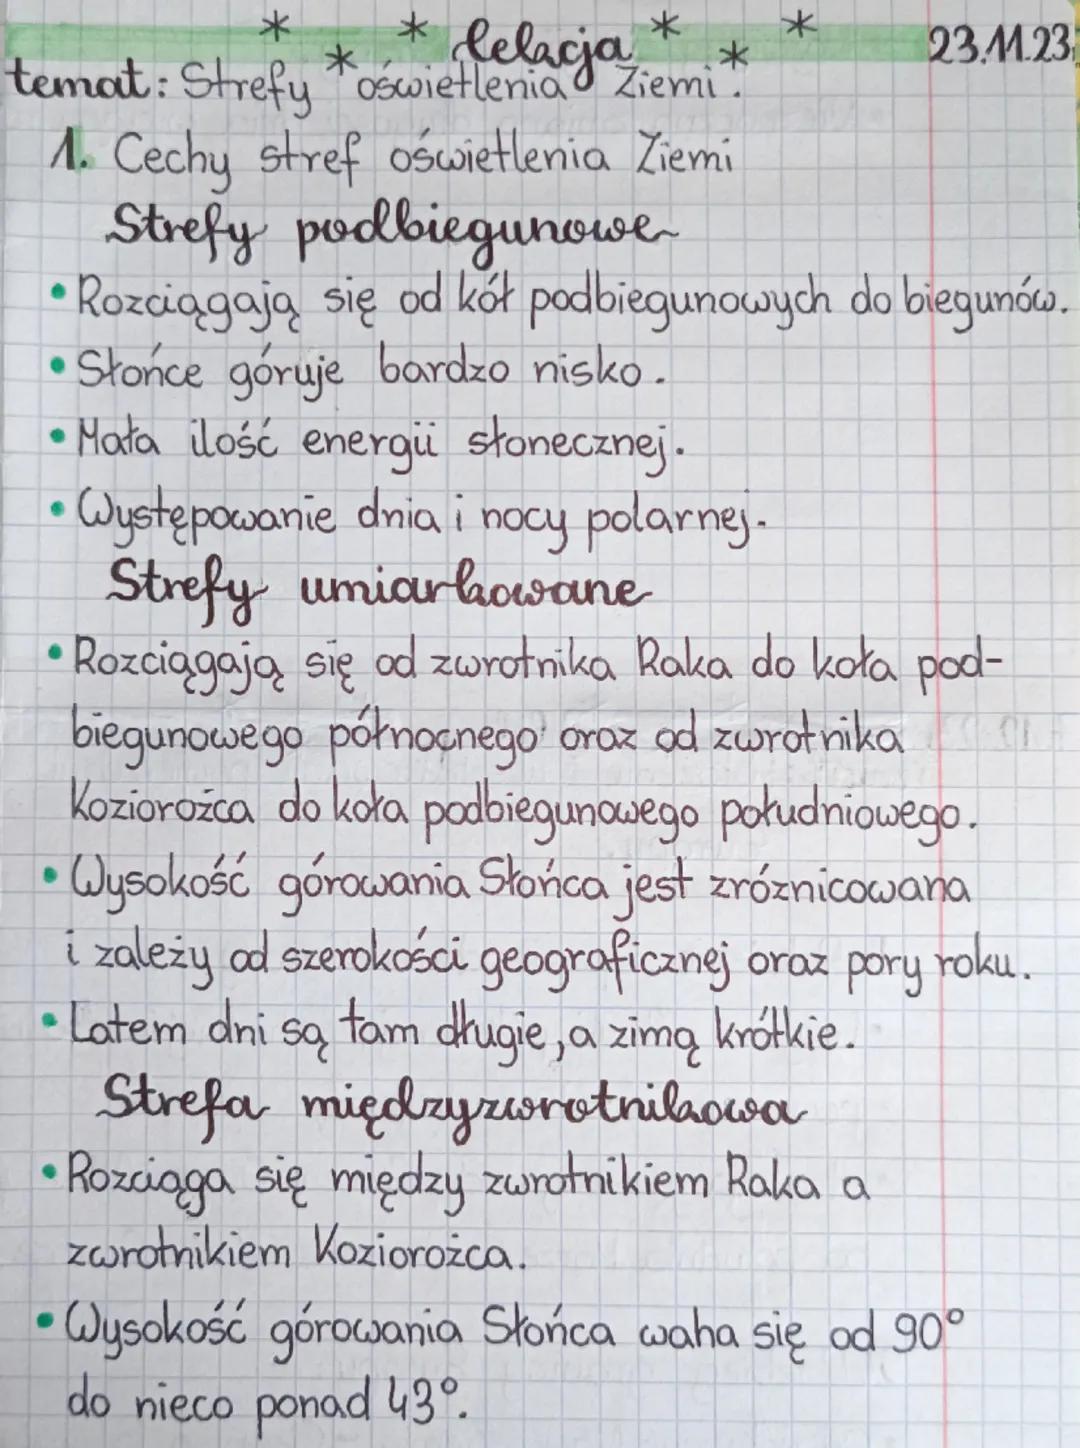 * * Lelcja * * 23.11.23
temat: Strefy * oświetlenia Ziemi. *
1. Cechy stref oświetlenia Ziemi
Strefy podbiegunowe
• Rozciągają się od kół podbiegunowych do biegunów.
• Słońce góruje bardzo nisko.
• Mała ilość energii słonecznej.
• Występowanie dnia i nocy polarnej.
Strefy umiarkowane
• Rozciągają się od zwrotnika Raka do koła pod-
biegunowego północnego oraz od zwrotnika
Koziorożca do koła podbiegunowego południowego.
• Wysokość górowania Słońca jest zróżnicowana
i zależy od szerokości geograficznej oraz pory roku.
• Latem dni są tam długie, a zimą krótkie.
Strefa międzyzwrotnikowa
• Rozciąga się między zwrotnikiem Raka a
zwrotnikiem Koziorożca.
• Wysokość górowania Słońca waha się od 90°
do nieco ponad 43°.